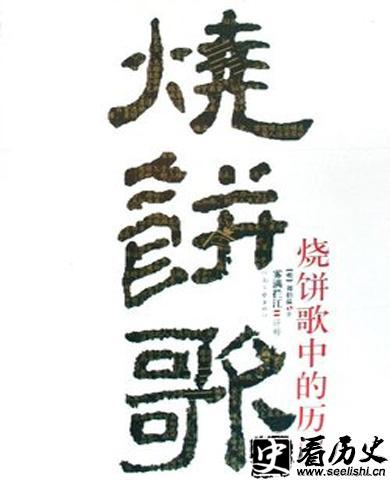 燒餅歌
烧饼歌中的历
雾满拦江
看历史
www.seelishi.cn